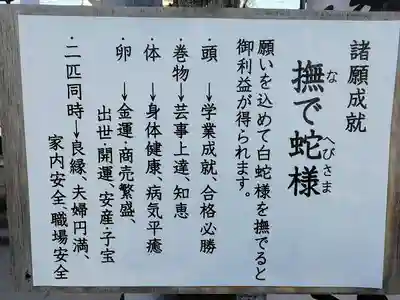 諸願成就
撫で蛇様
な
へびさま
願いを込めて白蛇様を撫でると
御利益が得られます。
・頭　→学業成就、合格必勝
・巻物→芸事上達、知恵
・体　→身体健康、病気平癒
・卵　→金運・商売繁盛、
出世・開運、安産・子宝
・二匹同時→良縁、夫婦円満、
家内安全、職場安全